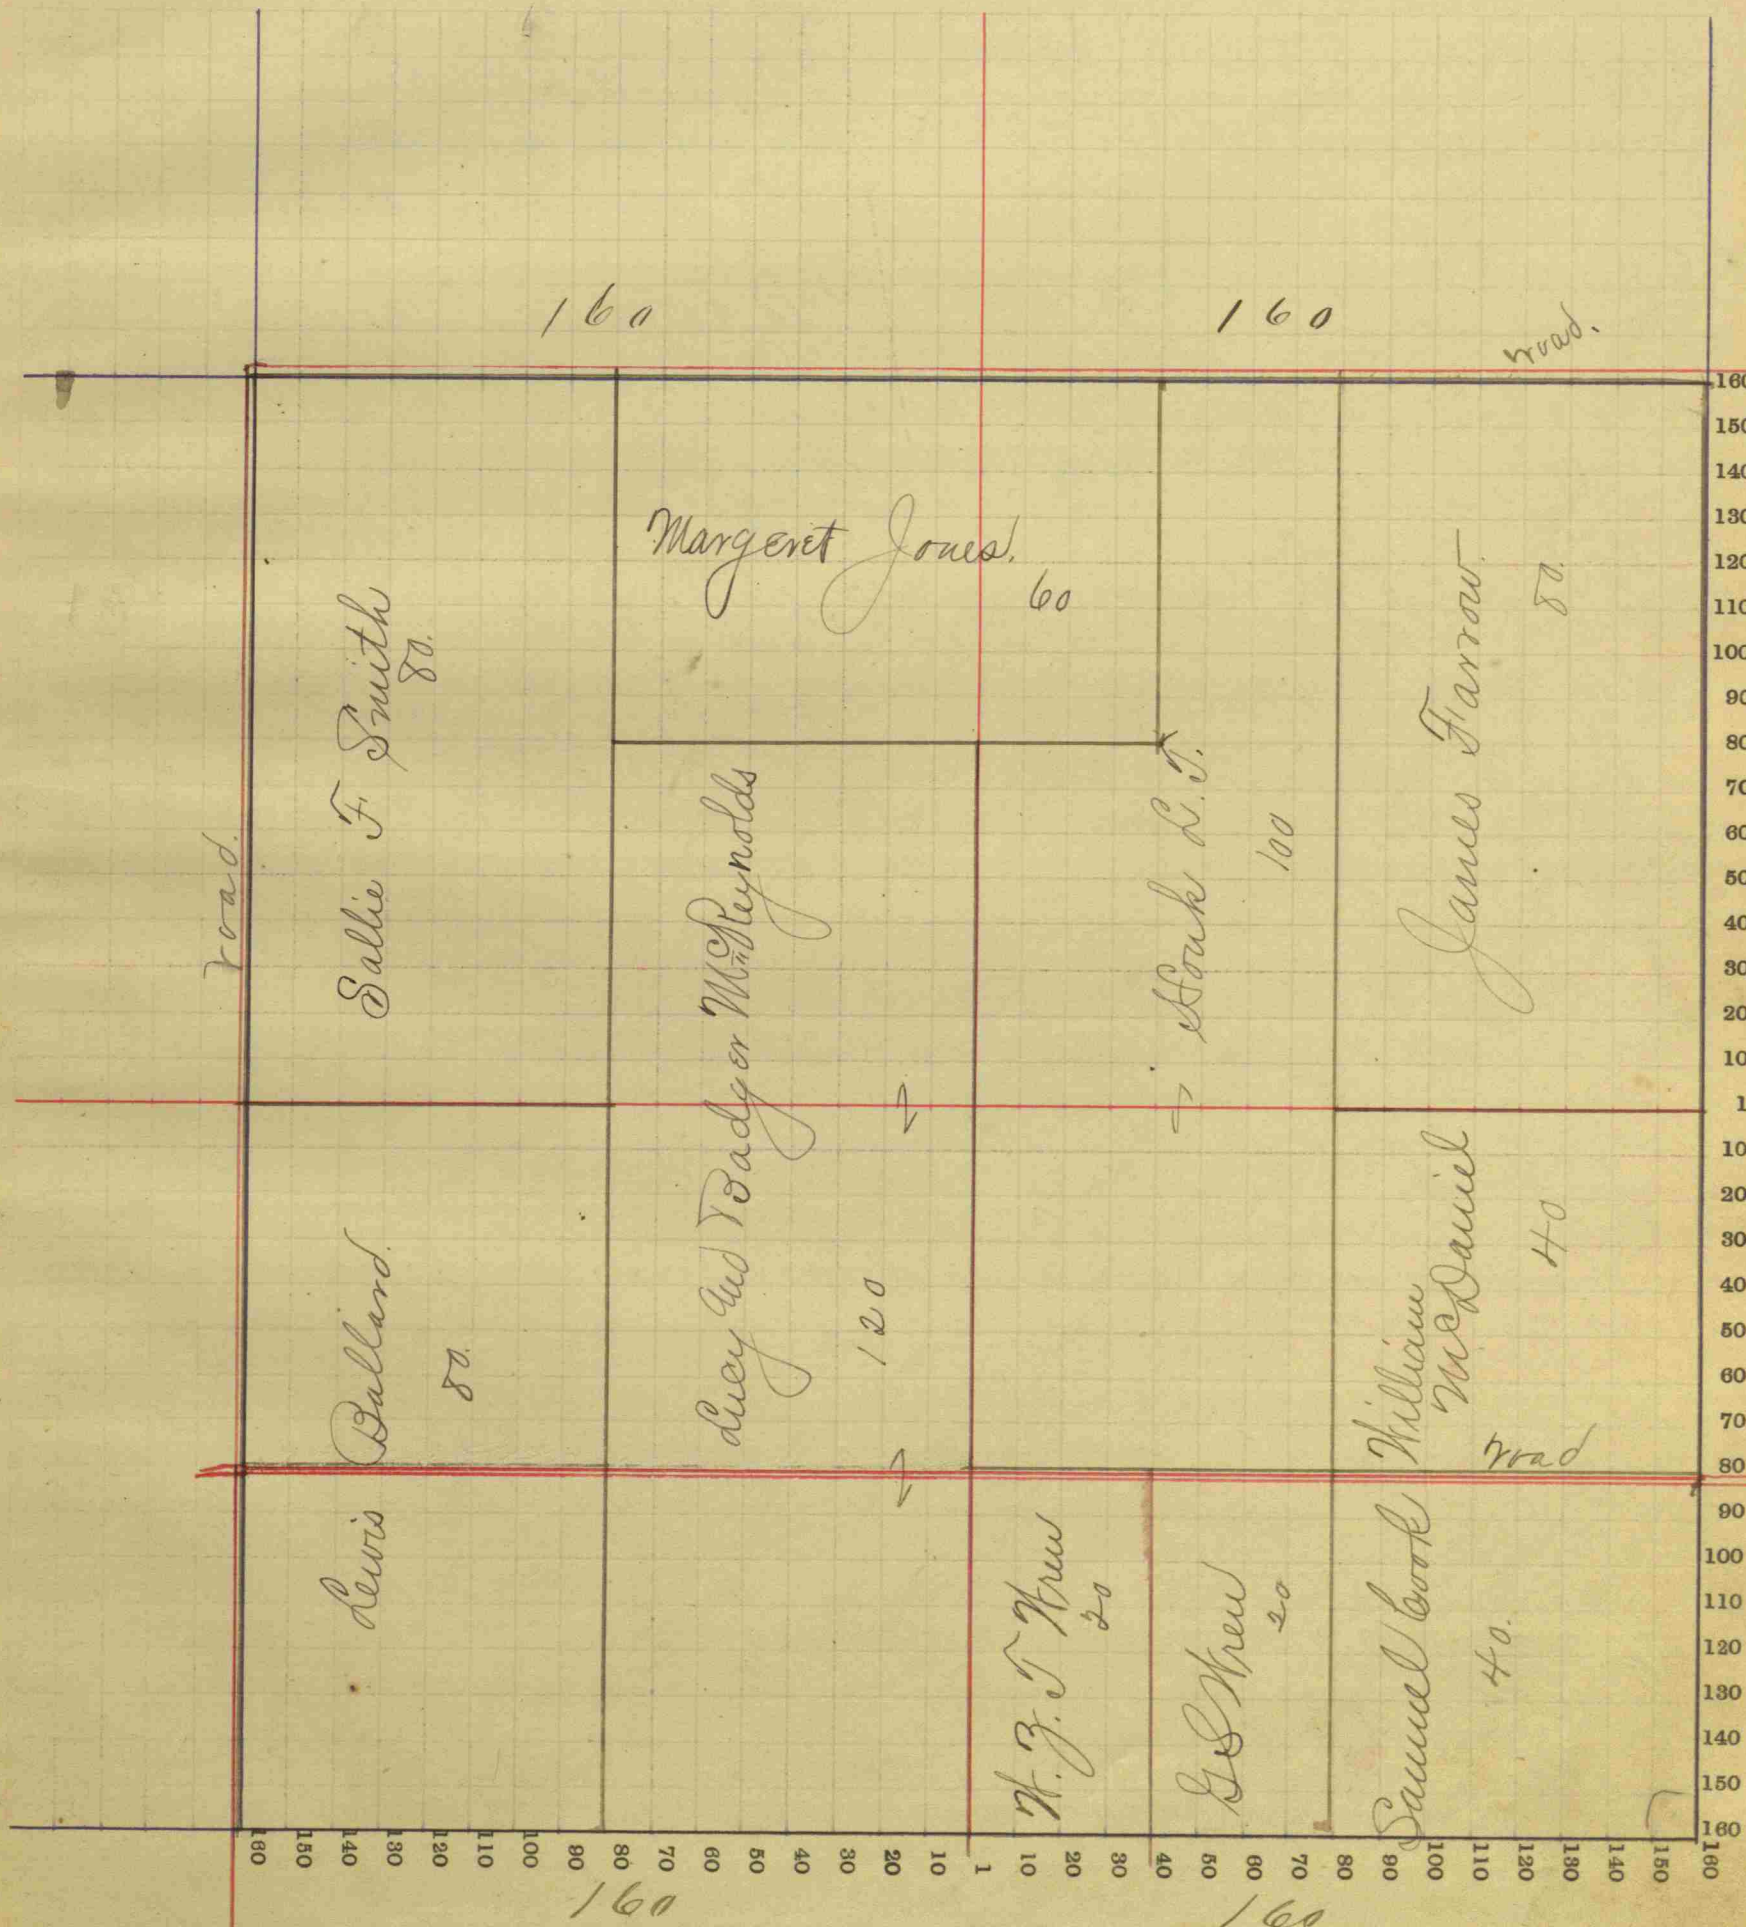 160
160
road.
Margeret Jones.
60
Sallie F. Smith
80.
road.
Houk L. T.
100
James Farrow.
80.
Lucy and Badger McReynolds
120
Lewis Ballard.
80.
William
McDaniel
40
road
W. Z. T Wren
20
G S Wren
20
Samuel Cook
40.
160
150
140
130
120
110
100
90
80
70
60
50
40
30
20
10
1
10
20
30
40
50
60
70
80
90
100
110
120
130
140
150
160
160 150 140 130 120 110 100 90 80 70 60 50 40 30 20 10 1 10 20 30 40 50 60 70 80 90 100 110 120 130 140 150 160
160
160